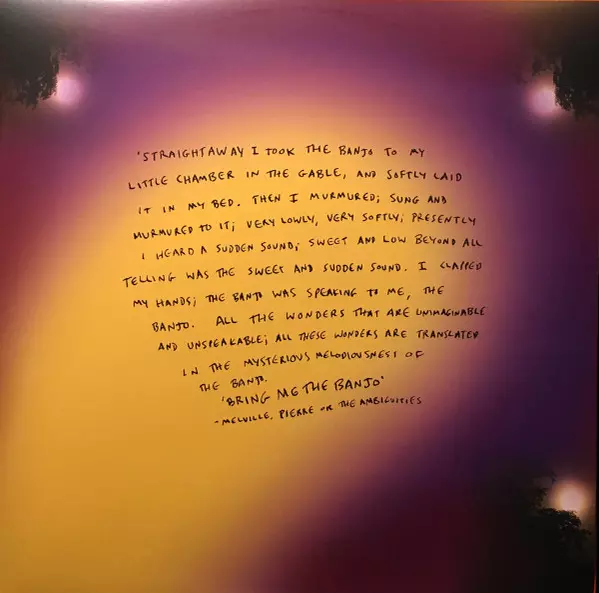 'STRAIGHTAWAY I TOOK THE BANJO TO MY
LITTLE CHAMBER IN THE GABLE, AND SOFTLY LAID
IT IN MY BED. THEN I MURMURED; SUNG AND
MURMURED TO IT; VERY LOWLY, VERY SOFTLY; PRESENTLY
I HEARD A SUDDEN SOUND; SWEET AND LOW BEYOND ALL
TELLING WAS THE SWEET AND SUDDEN SOUND. I CLAPPED
MY HANDS; THE BANJO WAS SPEAKING TO ME, THE
BANJO. ALL THE WONDERS THAT ARE UNIMAGINABLE
AND UNSPEAKABLE; ALL THESE WONDERS ARE TRANSLATED
IN THE MYSTERIOUS MELODIOUSNESS OF
THE BANJO.
'BRING ME THE BANJO'
-MELVILLE, PIERRE OR THE AMBIGUITIES